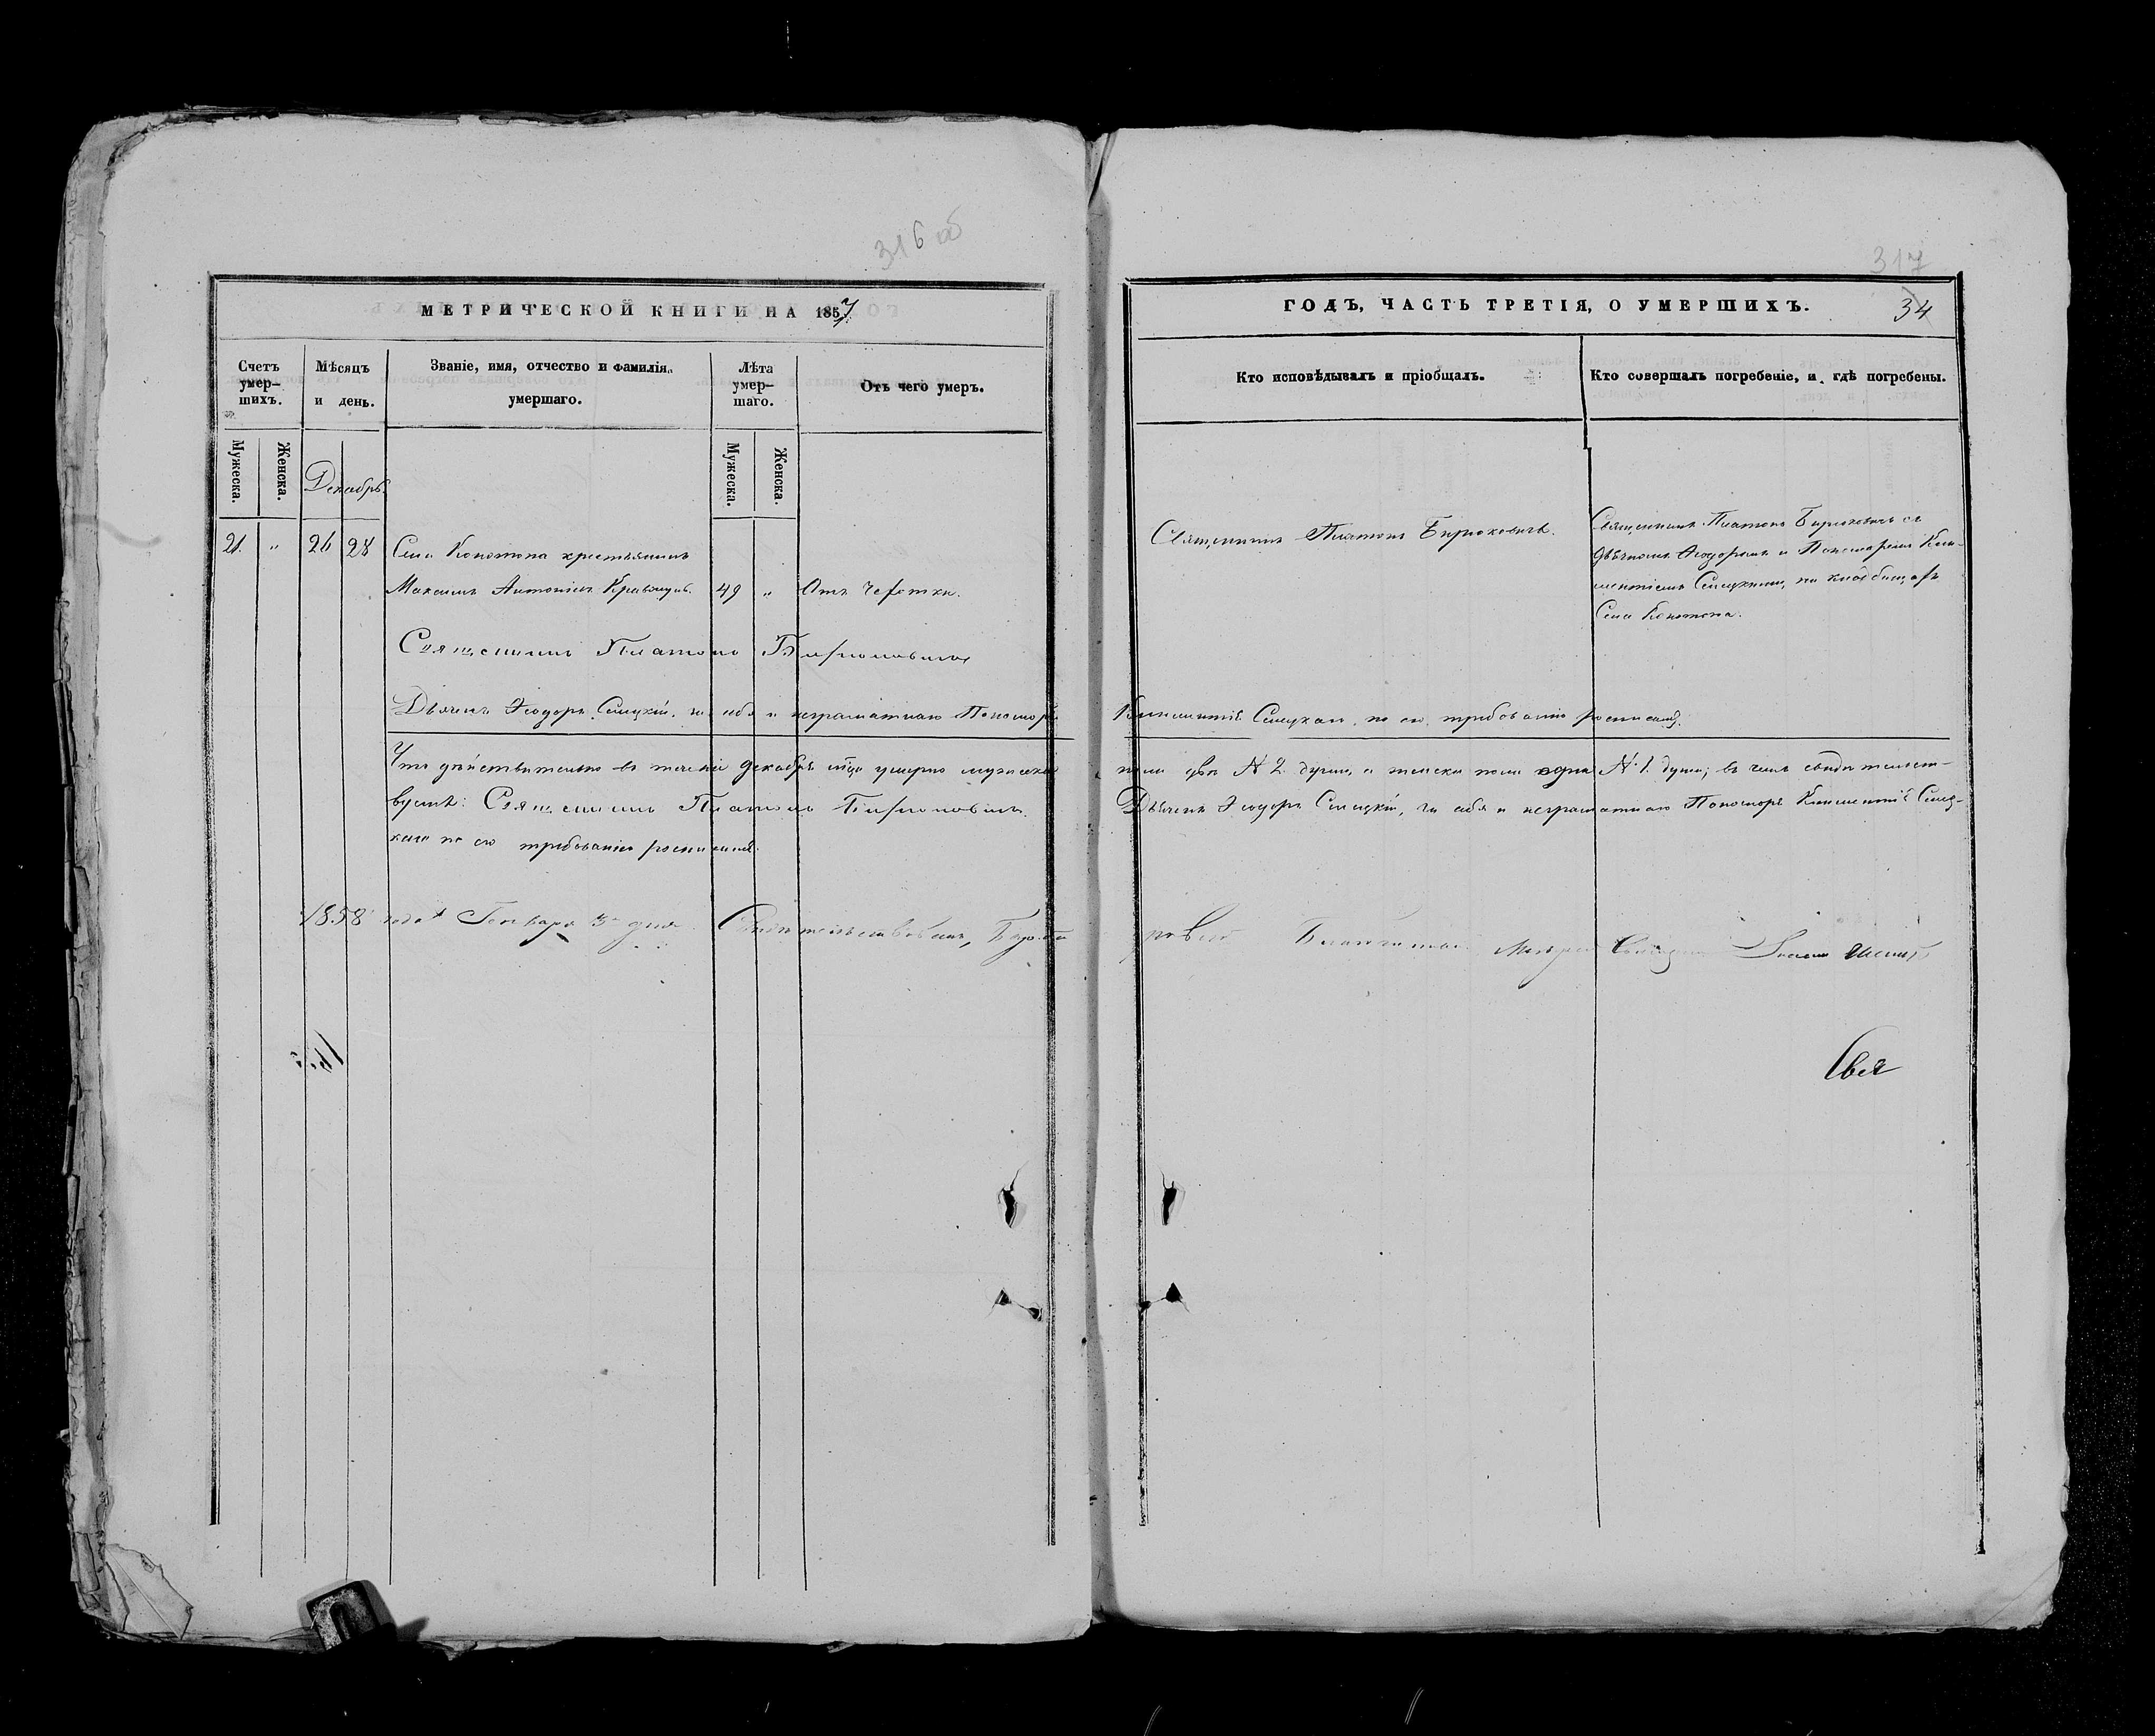 316 об
МЕТРИЧЕСКОЙ КНИГИ НА 1857
Счетъ умер-
шихъ.
Мѣсяцъ
и день.
Званіе, имя, отчество и фамилія
умершаго.
Лѣта
умер-
шаго.
Отъ чего умеръ.
Мужеска.
Женска.
Декабрь.
Мужеска.
Женска.
21. " 26 28 Села Конотопа крестьянинъ
Максимъ Антоніевъ Кравчукъ. 49 " Отъ чехотки.
Священникъ Платонъ Бирюковичъ
Дьячекъ Ѳеодоръ Сѣлецкій, за себя и неграматнаго Пономаря
Что дѣйствительно въ теченіи декабря м͠ца умерло мужеска
вуемъ: Священникъ Платонъ Бирюковичъ.
каго по его требованію росписался.
1858 года Генваря 3 дня. Свидѣтельствовалъ,
317
ГОДЪ, ЧАСТЬ ТРЕТІЯ, О УМЕРШИХЪ.
34
Кто исповѣдывалъ и пріобщалъ.
Кто совершалъ погребеніе, и гдѣ погребены.
Священникъ Платонъ Бирюковичъ.
Священникъ Платонъ Бирюковичъ съ
дьячкомъ Ѳеодоромъ и Пономаремъ Кли-
ментіемъ Сѣлецкими, на кладбищѣ
Села Конотопа.
Климентія Сѣлецкаго, по его требованію росписался.
пола двѣ № 2 души, а женска пола одна № 1 душа; въ чемъ свидѣтельст-
Дьячекъ Ѳеодоръ Сѣлецкій, за себя и неграматнаго Пономаря Климентія Сѣлец-
Свя